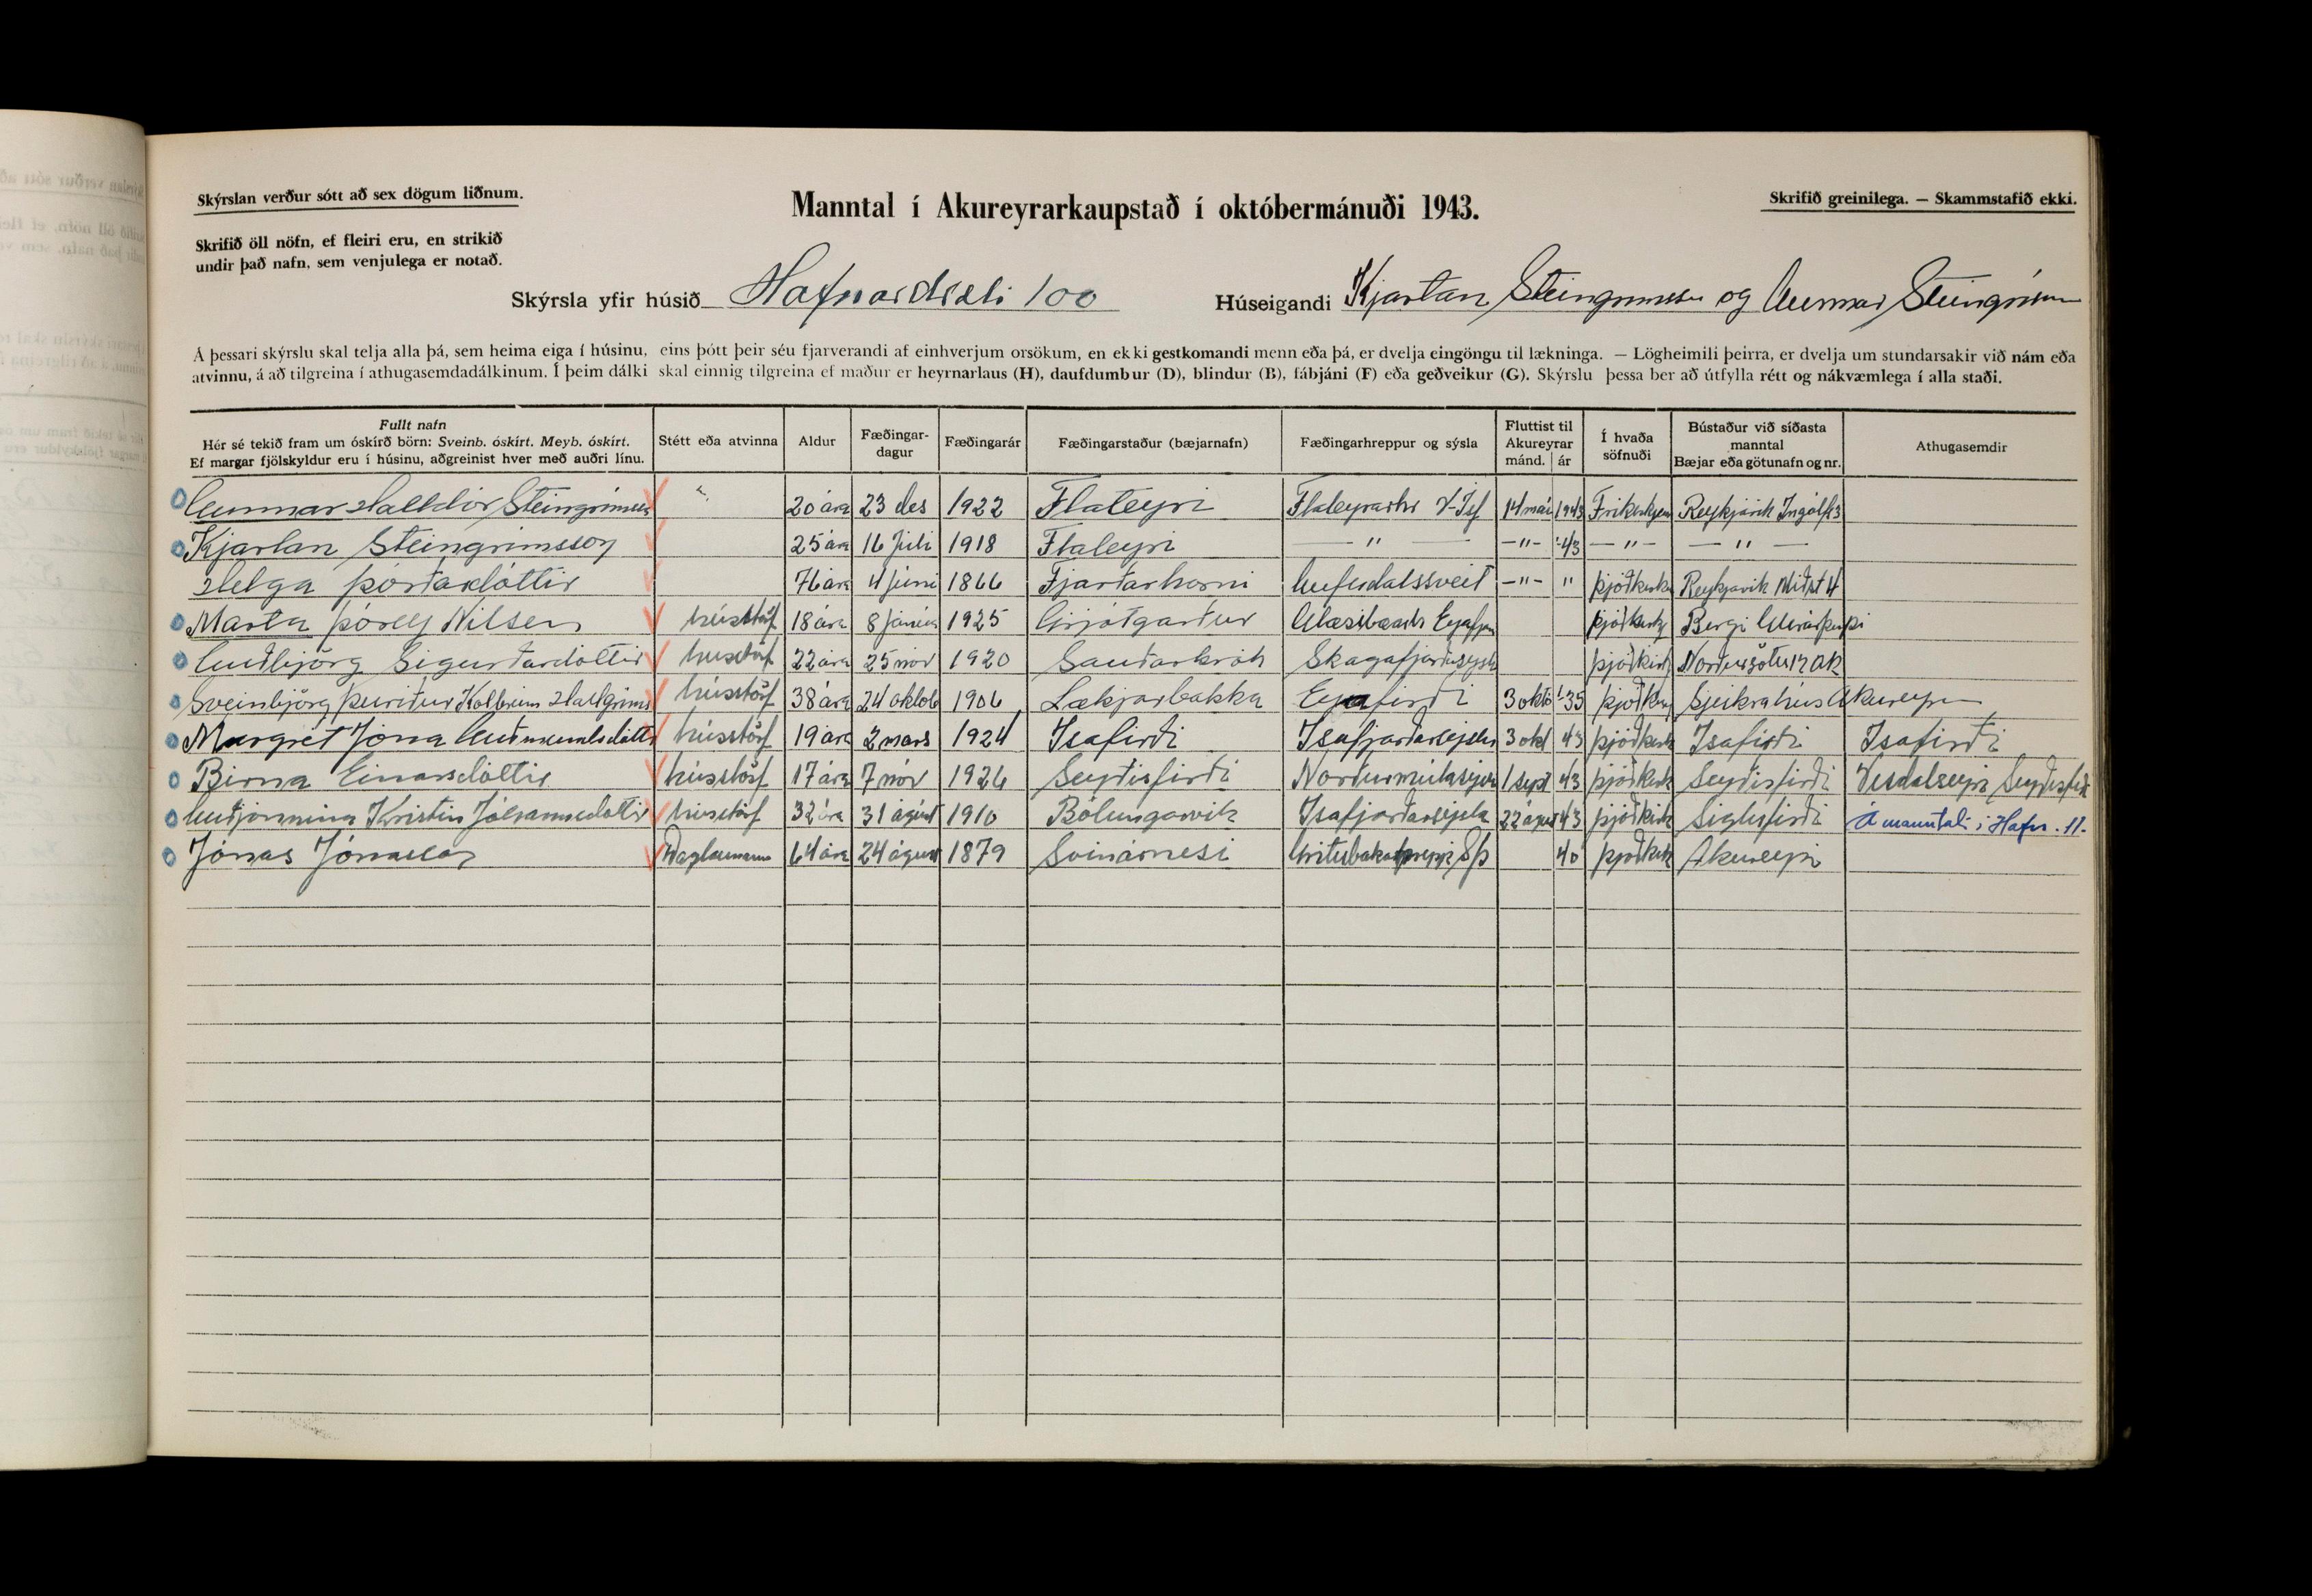 Skýrslan verður sótt að sex dögum liðnum.
Manntal í Akureyrarkaupstað í októbermánuði 1943.
Skrifið greinilega. — Skammstafið ekki.
Skrifið öll nöfn, ef fleiri eru, en strikið
undir það nafn, sem venjulega er notað.
Skýrsla yfir húsið Hafnarstræti 100 Húseigandi Kjartan Steingrimsson og Gunnar Steingrímsson
Á þessari skýrslu skal telja alla þá, sem heima eiga í húsinu, eins þótt þeir séu fjarverandi af einhverjum orsökum, en ekki gestkomandi menn eða þá, er dvelja eingöngu til lækninga. — Lögheimili þeirra, er dvelja um stundarsakir við nám eða
atvinnu, á að tilgreina í athugasemdadálkinum. Í þeim dálki skal einnig tilgreina ef maður er heyrnarlaus (H), daufdumbur (D), blindur (B), fábjáni (F) eða geðveikur (G). Skýrslu þessa ber að útfylla rétt og nákvæmlega í alla staði.
Fullt nafn
Hér sé tekið fram um óskírð börn: Sveinb. óskírt. Meyb. óskírt.
Ef margar fjölskyldur eru í húsinu, aðgreinist hver með auðri línu.
Stétt eða atvinna
Aldur
Fæðingar-
dagur
Fæðingarár
Fæðingarstaður (bæjarnafn)
Fæðingarhreppur og sýsla
Fluttist til
Akureyrar
mánd. ár
Í hvaða
söfnuði
Bústaður við síðasta
manntal
Bæjar eða götunafn og nr.
Athugasemdir
Gunnar Halldór Steingrímsson 20 ára 23 des 1922 Flateyri Flateyrarhr V-Ísf 14 maí 1943 Frikirkjan Reykjavík Ingólfs 3
Kjartan Steingrimsson 25 ára 16 Júli 1918 Flateyri — " — — " — '43 — " — — " —
Helga þórðardóttir 76 ára 4 júni 1866 Fjarðarhorni Gufudalssveit — " — " þjóðkirkj Reykjavik Miðst 4
Marta þórey Nilsen hússtörf 18 ára 8 janúa 1925 Grjótgarður Glæsibæarh Eyjafjar þjóðkirkj Bergi Glerárþorpi
Guðbjörg Sigurðardóttir hússtörf 22 ára 25 nóv 1920 Sauðarkrók Skagafjarðsýsl þjóðkirkj Norðurgötu 12 AK
Sveinbjörg þuriður Kolbrún Hallgríms hússtörf 38 ára 24 oktob 1906 Lækjarbakka Eyafirði 3 októ '35 þjóðkirkj Sjúkrahús Akureyri
Margrét Jóna Guðmundsdóttir hússtörf 19 ára 2 mars 1924 Isafirði Isafjarðarsýslu 3 okt 43 þjóðkirk Isafirði Isafirði
Birna Einarsdóttir hússtörf 17 ára 7 nóv 1926 Seyðisfirði Norðurmúlasýslu 1 sept 43 þjóðkirk Seyðisfirði Vesdalseyri Seyðisfirði
Guðjónnina Kristín Jóhannsdóttir hússtörf 32 ára 31 ágúst 1910 Bólungarvík Isafjarðarsýslu 22 águst 43 þjóðkirk Siglufirði Á manntali í Hafn. 11.
Jónas Jónasson Daglaunam 64 ára 24 ágúst 1879 Svinárnesi Grítubakahreppi Sþ 40 þjóðkirk Akureyri